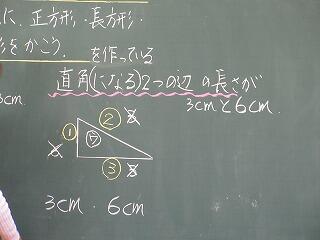 に、正方形・長方形・
形をかこう. を作っている
直角(になる)2つの辺 の長さが
3cm
3cmと6cm.
② 
① ㋒
③
3cm . 6cm